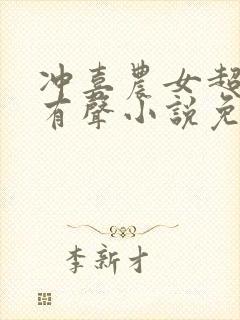 冲喜農女超
有聲小說免
李新才